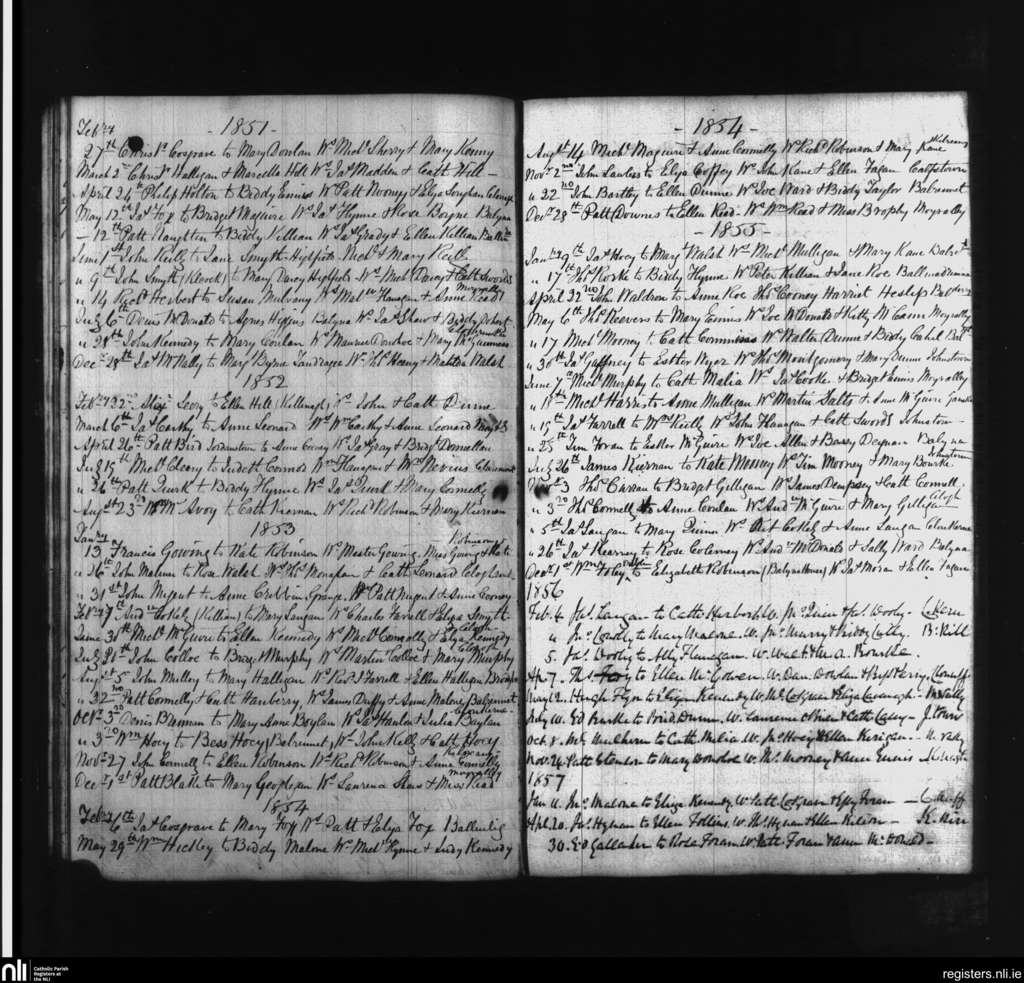 Feby
- 1851 -
27th Christr Cosgrave to Mary Donlan Ws Michl Sherry & Mary Kenny
March 2 Christr Halligan & Marcella Holt Ws Jas Madden & Cath Holt -
April 24th Philip Holton to Biddy Ennis Ws Patt Mooney & Eliza
May 12th Jas Fox to Bridget Maguire Ws Jas Flynne & Rose Boyne Balyna
- 12th Patt Naughten to Biddy Killian Ws Jas Grady & Ellen Killian
June 1st John Reilly to Jane Smyth Highfots Michl & Mary Reill
" 9th John Smyth to Mary Darcy Ws Michl Darcy & Cath Swords
Moyvally
" 14 Richd Herbert to Susan Mulvany Ws Flanagan & Anne Read
July 6th Denis McDonald to Agnes Higgins Balyna Ws Jas Shaw & Biddy
" 28th John Kennedy to Mary Conlan Ws Maurice Donohoe & Mary McGuinness
Decr 28th Jas McNally to Mary Byrne Ws Thos Heavy & Walsh
1852
Feby to Ellen Holt Ws John & Catt Dunne
March 6th Jas Carthy to Anne Leonard Ws Wm Carthy & Anne Leonard
April 26th Patt Bird to Anne Ws Jas Gray & Bridgt Donnellan
July 15th Michl Cleary to Judeth Connor Wm Flanagan & Mrs Nevins
" 26th Patt Quirk to Biddy Flynne Ws Jas Quirk & Mary Connelly
Augst 23rd McAvoy to Cath Kiernan Ws Richd Robinson & Mary Kiernan
1853
Jany
13 Francis Gowing to Kate Robinson Ws Mester Gowing, Miss Gowing & Kate Robinson
" 26th John Malone to Rose Walsh Ws Thos Monahan & Cath Leonard
" 31st John Nugent to Anne Cribbin, Grange. Ws Patt Nugent & Anne Cooney
Feby 7th Andw (Killian) to Mary Langan Ws Charles Farrell & Eliza Smyth
June 30th Michl McGuire to Ellen Kennedy Ws Michl Connolly & Eliza Kennedy
July 31st John Colloe to Bridgt Murphy Ws Martin Colloe & Mary Murphy
Augst 5 John Mulloy to Mary Halligan Ws Richd Farrell & Ellen Halligan
" 22nd Patt Connelly & Cath Hanberry, Ws James Duffy & Anne Malone Balrennet
Octr 3rd Denis Bannan to Mary Anne Boylan Ws Jas Hanlon & Julia Boylan
" 3rd Wm Hoey to Bess Hoey, Balrennet, Ws John Kelly & Cath Hoey
Novr 27 John Connell to Ellen Robinson Ws Richd Robinson & Anne Connelly
Moyvally
Decr 1st Patt Blake to Mary Geoghegan Ws Laurence Shaw & Miss Read
1854
Feby 6th Jas Cosgrave to Mary Fox Ws Patt & Eliza Fox
May 29th Wm Hickey to Biddy Malone Ws Michl Flynne & Judy Kennedy
- 1854 -
Augst 14 Michl Maguire & Anne Connelly Ws Richd Robinson & Mary
Novr 2nd John Lawless to Eliza Coffey Ws John Kane & Ellen Fagan
" 22nd John Bartley to Ellen Dunne Ws Joe Ward & Biddy Taylor Balrennet
Decr 28th Patt Downes to Ellen Read Ws Wm Read & Miss Brophy Moyvally
- 1855 -
Jany 29th Jas Hoey to Mary Walsh Ws Michl Mulligan & Mary Kane
" 17th Thos Rorke to Biddy Flynne Ws Peter Killian & Jane Roe
April 22nd John Waldron to Anne Roe Thos Cooney Harriet Heslip
May 6th Thos Reevers to Mary Ennis Ws Joe McDonald & Kitty McCann Moyvally
" 17 Michl Mooney to Cath Commins Ws Walter Dunne & Biddy Cahil
" 30th Jas Gaffney to Esther Ws Thos Montgomery & Mary Dunne Johnstown
June 7th Michl Murphy to Cath Malia Ws Jas Rorke & Bridget Ennis Moyvally
" 11th Michl Harris to Anne Mulligan Ws Martin & Anne McGuire
" 15th Jas Farrell to Mrs Reilly Ws John Flanagan & Cath Swords Johnston
" 25th Tim Foran to Esther McGuire Ws Joe Allen & Bessy Deegnan Balyna
Johnstown
July 26th James Kiernan to Kate Mooney Ws Tim Mooney & Mary Bourke
Novr 3 Thos Curran to Bridget Gilligan Ws James Dempsey & Catt Connell
" 3rd Thos Connelly to Anne Conlan Ws Andw McGuire & Mary Gilligan
" 5th Jas Langan to Mary Quinn Ws & Anne Langan
" 26th Jas Kearney to Rose Ws Andw McDonald & Sally Ward Balyna
Decr 1st Wm Foley to Elizabeth Robinson Ws Jas Moran & Ellen Fagan
1856
Feb. 4 Jas. Langan to Cathe Ws. Jno. Quin & Woods
" Jno. Cowly to Mary Malone. W. Jno. Murry & Biddy
5. Jas. Woods to Ally Flanagan. W. Walt & M. A. Bourke.
Apr. 7. Thos. Foy to Ellen McGovern. W. Dan. Dowlan &
May 12. Hugh Flyn to Eliza Kennedy W. & Eliza Cavanagh
July W. Ed. Burke to Brid Dunn. W. Laurence & Cath Casey - J. town
Oct. 8. Mulhern to Cath Malia W. Hoey & Ellen Kerigan
Nov. 24 Patt to Mary Donohoe W. Ml. Mooney & Anne Ennis
1857
Jan 11. Ml. Malone to Eliza Kennedy W. Patt Cosgrave & Foran
Apl. 20. Jno. Hynan to Ellen Follins. W. Hynan & Ellen
30. Ed Gallaher to Rosa Foran. W. Patt Foran & Ann McDonald -
nli
Catholic Parish
Registers at
the NLI
registers.nli.ie